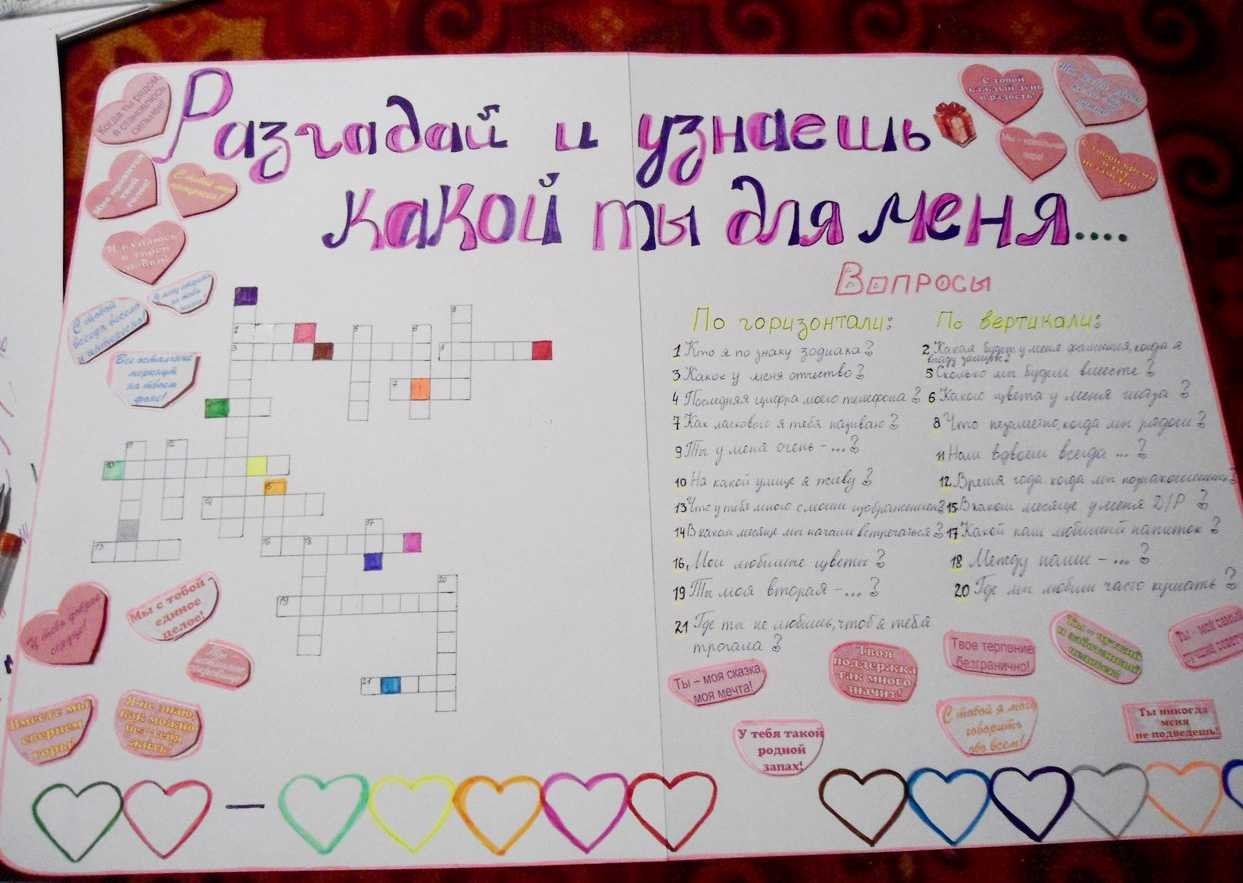 Разгадай и узнаешь
какой ты для меня....
Когда ты рядом,
я становлюсь
сильнее!
С тобой
всегда весело
и интересно!
Все остальные
меркнут
на твоем
фоне!
С тобой
каждый день
в радость!
Вопросы
По горизонтали:
1 Кто я по знаку зодиака?
3 Какое у меня отчество?
4 Последняя цифра моего телефона?
7 Как ласково я тебя называю?
9 Ты у меня очень - ...?
10 На какой улице я живу?
13 Что у тебя много с моими изображениями?
14 В каком месяце мы начали встречаться?
16. Мои любимые цветы?
19 Ты моя вторая - ...?
21 Где ты не любишь, чтоб я тебя
трогала?
По вертикали:
2 Какая будет у меня фамилия, когда я
выйду замуж?
5 Сколько мы будем вместе?
6 Какого цвета у меня глаза?
8 Что незаметно, когда мы рядом?
11 Нам вдвоем всегда ...?
12 Время года, когда мы познакомились?
15 В каком месяце у меня Д/Р?
17 Какой наш любимый напиток?
18 Между нами - ...?
20 Где мы любим часто кушать?
У тебя доброе
сердце!
Мы с тобой
единое
целое!
Вместе мы
свернем
горы!
Я не знаю,
как можно
без тебя
жить!
Ты – моя сказка,
моя мечта!
Твоя
поддержка
так много
значит!
Твое терпение
безгранично!
Ты – чуткий
и заботливый
У тебя такой
родной
запах!
С тобой я могу
говорить
обо всем!
Ты никогда
меня
не подведешь!